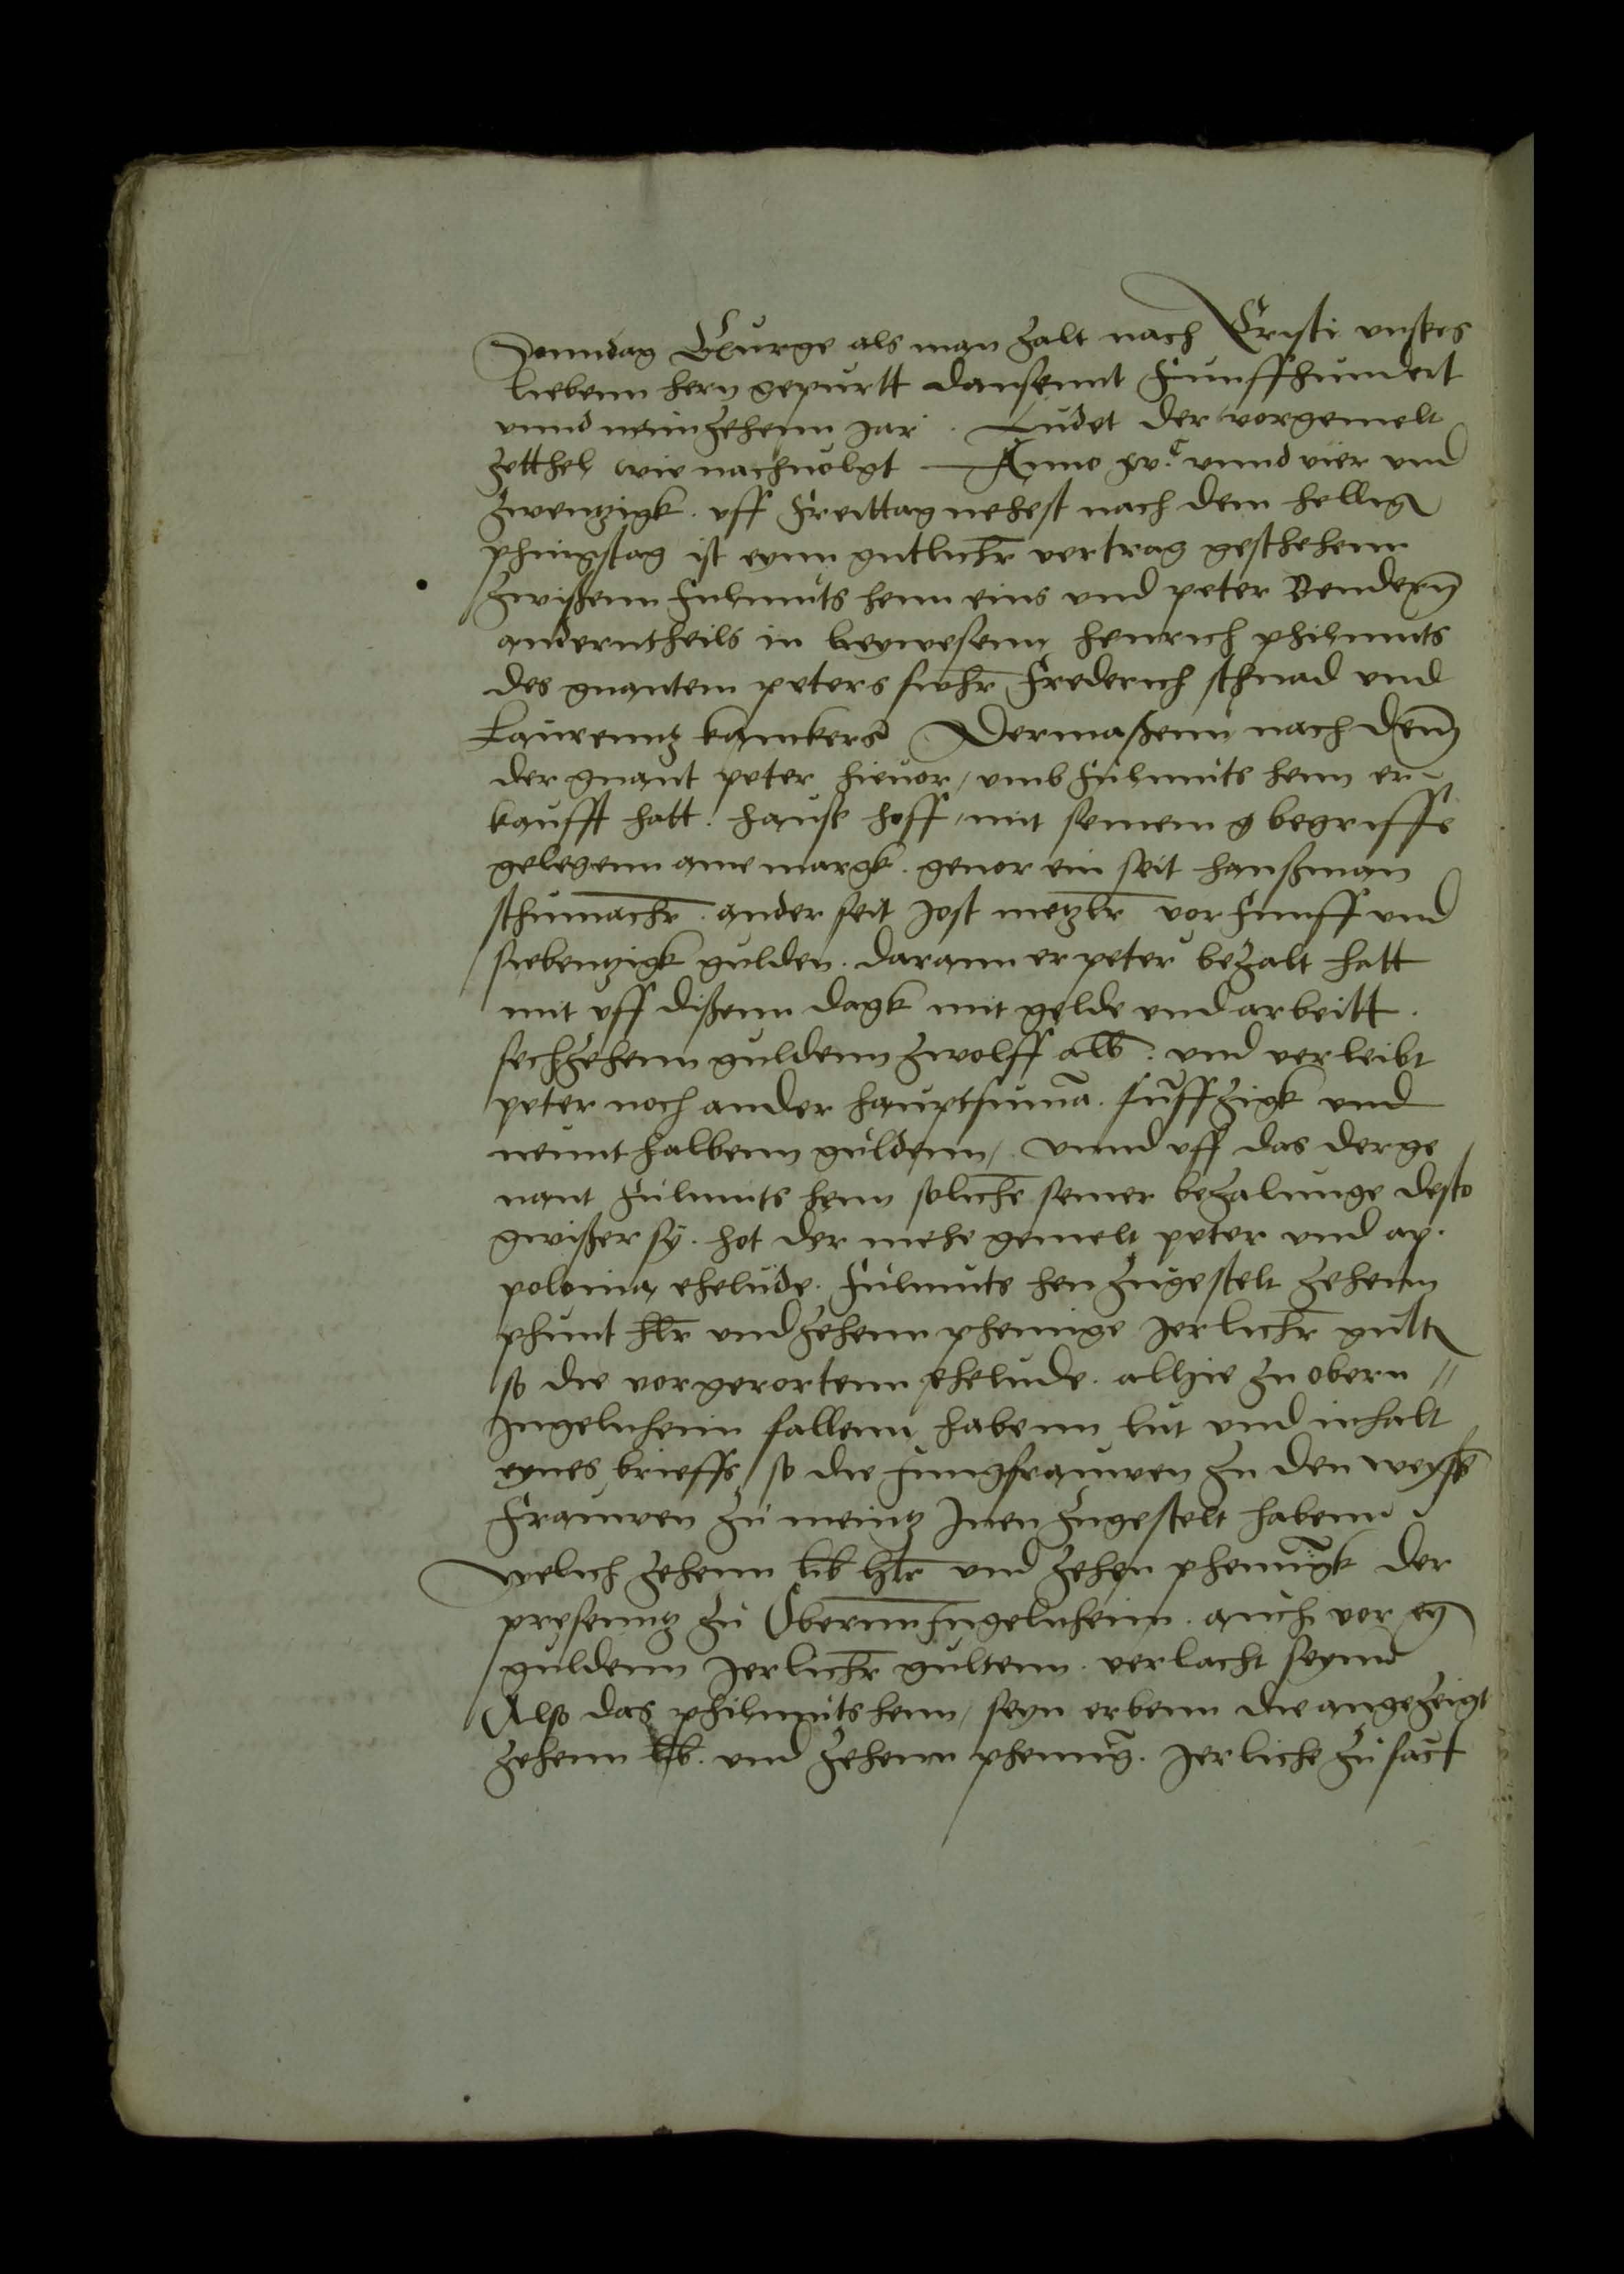 Donndag Exurge als man zalt nach Cristi unßers
liebenn hern gepurtt dausennt funffhundert
unnd neunzehenn jar . Ludet der vorgemelt
zetthel wie nachvolgt Anno xv.c unnd vier und
zwentzigk . uff freittag nehest nach dem hellig
phingstag ist eynn gutlichr vertrag geschehenn
zwißenn fulmuts henn eins und peter Bendern
anderntheils in beywesenn henrich philmuts
des gnanten peters swhr frederich schnad und
Laurentz Ranckers Dermaßenn nach dem
der gnant peter hievor / umb fulmuts henn er-
kaufft hatt . hauß hoff / mit seinem g begriffe
gelegenn ame margk . genor ein seit hanßman
schumachr . ander seit jost metzlr vor funff und
siebentzigk gulden . darann er peter bezalt hatt
mit uff dißenn dagk mit gelde und arbeitt .
sechzehenn guldenn zwolff alb . und verleibt
peter noch an der hauptsuma . fuffzigk und
neunthalbenn guldenn / . unnd uff das der ge
nant fulmuts henn soliche seiner bezalunge desto
gwißer sy . hot der mehe gemelt peter und ap.
polonia ehelude . fulmuts hen zugestelt zehenn
phunt hlr und zehenn phennige jerlichr gult
so die vorgerortenn ehelude . alhie zu obern //
Ingelnheim fallenn habenn lut und inhalt
eynes brieffs / so die jungfrauwen zu den weyß
frauwen zu meintz Inen zugestelt habenn
welich zehenn lib hlr und zehen phennigk der
presentz zu Obernn Ingelnheim . auch vor eyn
guldenn jerlichr gultenn . verlacht seynd
Also das philmuts henn / seyn erbenn die angezeigt
zehenn lib . und zehenn phennig . jerliche zu sact